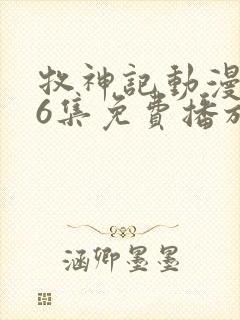 牧神記動漫
6集免費播放
涵卿墨墨